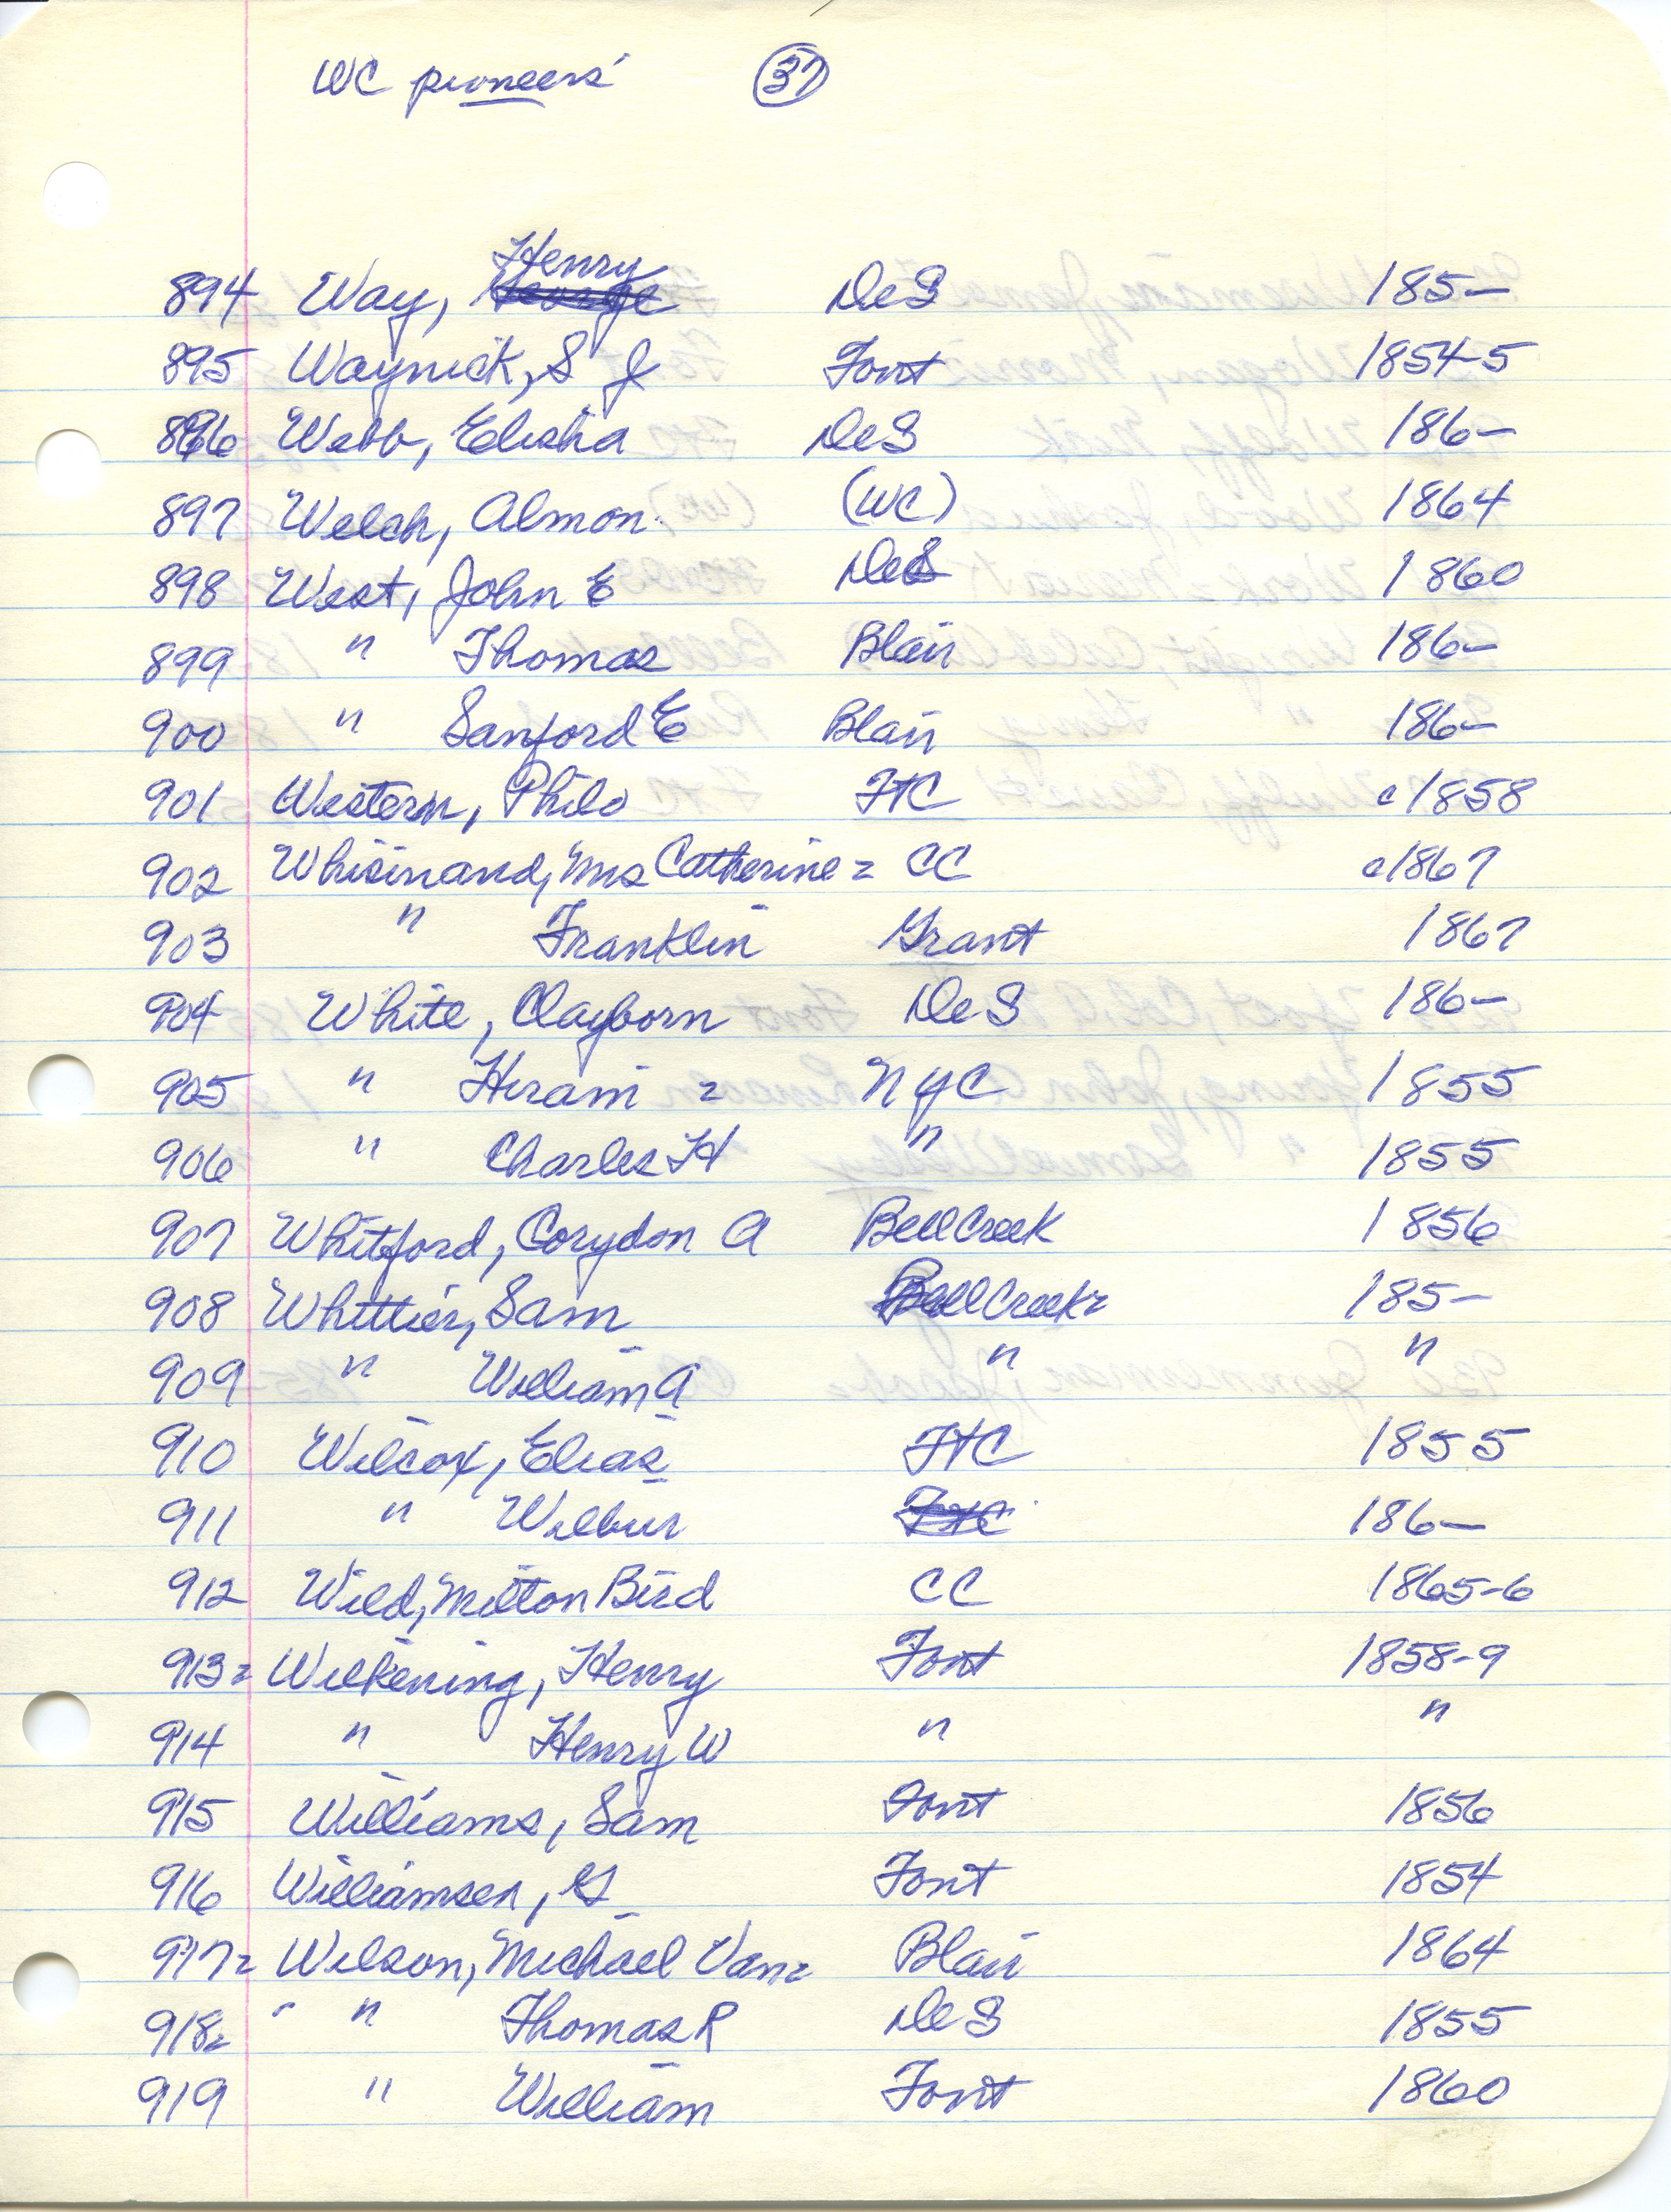 WC pioneers' 37
Henry
894 Way, George DeS 185-
895 Waynick, S J Font 1854-5
896 Webb, Elisha DeS 186-
897 Welch, Almon (WC) 1864
898 West, John E DeS 1860
899 " Thomas Blair 186-
900 " Sanford E Blair 186-
901 Western, Philo FtC c1858
902 Whisinand, Mrs Catherine = CC c1867
903 " Franklin Grant 1867
904 White, Clayborn DeS 186-
905 " Hiram = NYC 1855
906 " Charles H " 1855
907 Whitford, Corydon A Bell Creek 1856
908 Whittier, Sam Bell Creek = 185-
909 " William A " "
910 Wilcox, Elias FtC 1855
911 " Wilbur FtC 186-
912 Wild, Milton Bird CC 1865-6
913 = Wilkening, Henry Font 1858-9
914 " Henry W " "
915 Williams, Sam Font 1856
916 Williamsen, G Font 1854
917 = Wilson, Michael Van = Blair 1864
918 = " Thomas R DeS 1855
919 " William Font 1860